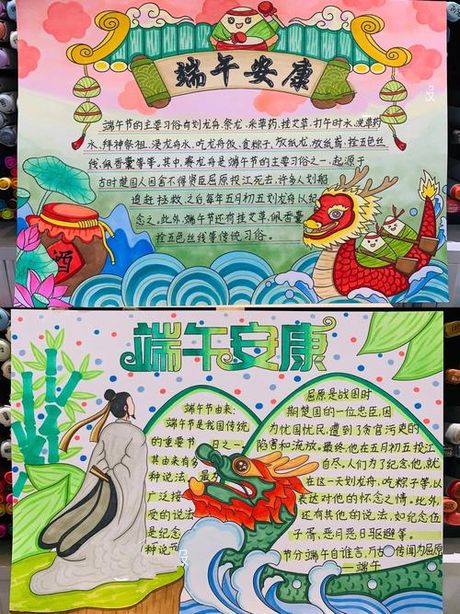 端午安康
端午节的主要习俗有划龙舟、祭龙、采草药、挂艾草、打午时水、洗草药
水、拜神祭祖、浸龙舟水、吃龙舟饭、食粽子、放纸龙、放纸鸢、拴五色丝
线、佩香囊等等，其中，赛龙舟是端午节的主要习俗之一，起源于
古时楚国人因舍不得贤臣屈原投江死去，许多人划船
追赶拯救，之后每年五月初五划龙舟以纪
念之。此外，端午节还有挂艾草、佩香囊、
拴五色丝线等传统习俗。
酒
端午安康
端午节由来：
端午节是我国传统
的重要节日之一
其由来有多
种说法，最为
广泛接
受的说法
是纪念
种说
屈原是战国时
期楚国的一位忠臣，因
为忧国忧民，遭到了贪官污吏的
陷害和流放。最终，他在五月初五投江
自尽，人们为了纪念他，就
在这一天划龙舟，吃粽子等，以
表达对他的怀念之情。此外，
还有其他的说法，如纪念伍
子胥，恶月恶日驱避等。
节分端午自谁言，万古传闻为屈原
—端午